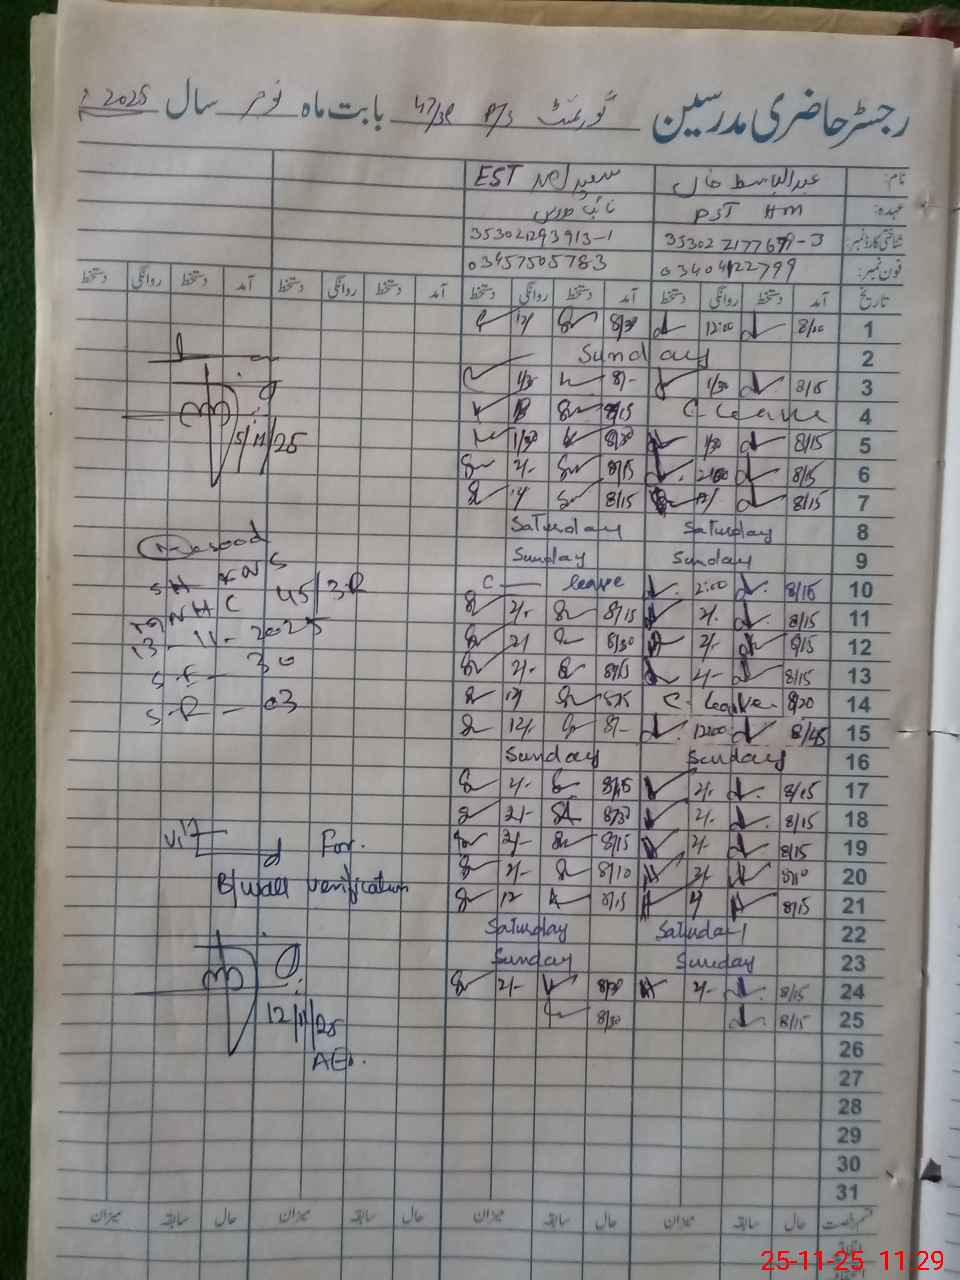 رجسٹر حاضری مدرسین گورنمنٹ P/S 47/3R بابت ماہ نومبر سال 2025ء
نام: عبدالباسط خان EST
عہدہ: PST HM نائب مدرس
شناختی کارڈ نمبر: 353022177679-3 353021293913-1
فون نمبر: 03404122799 03457505783
تاریخ آمد دستخط روانگی دستخط آمد دستخط روانگی دستخط آمد دستخط روانگی دستخط آمد دستخط روانگی دستخط
1 8/20 12:00 8/30 12/
2 Sunday
3 8/15 1/30 8/- 1/30
4 C-leave 8/15
5 8/15 1/30 8/30 1/30
6 8/15 2:00 8/15 2/-
7 8/15 12/ 8/15
8 Saturday Saturday
9 Sunday Sunday
10 8/15 2:00 C-leave
11 8/15 2/- 8/15 2/-
12 8/15 2/- 8/30 2/
13 8/15 2/- 8/15 2/-
14 8/20 C-leave
15 8/45 12:00 8/- 12/-
16 Sunday Sunday
17 8/15 2/- 8/15 2/-
18 8/15 2/- 8/30 2/-
19 8/15 2/- 8/15 2/-
20 8/10 2/- 8/10 2/-
21 8/15 8/15 12
22 Saturday Saturday
23 Sunday Sunday
24 8/15 2/- 8/30 2/-
25 8/15 8/30
26
27
28
29
30
31
حال سابقہ میزان حال سابقہ میزان حال سابقہ میزان حال سابقہ میزان
5/11/25
Masood
SH
MNHC 45/3R
13-11-2025
S-F- 30
S-R - 03
For.
B/wall verification
12/11/25
AEO.
25-11-25 11:29